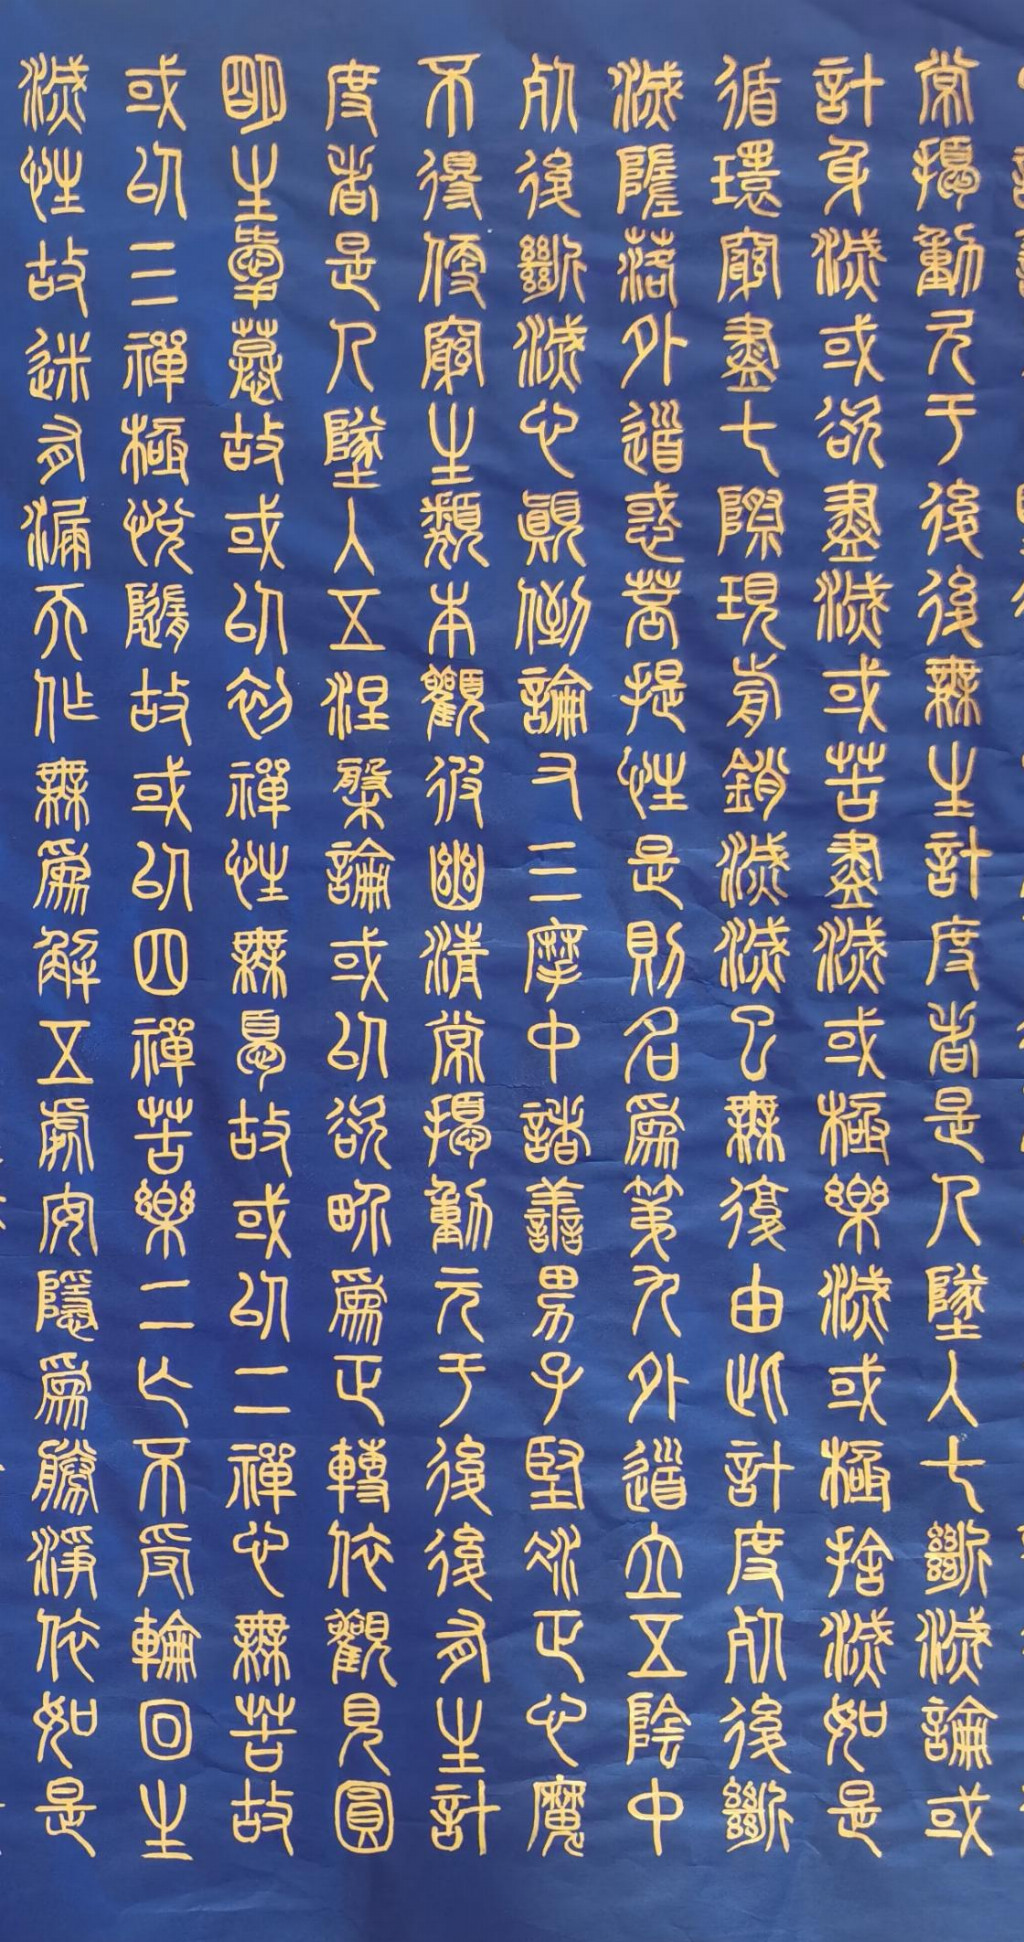 常擾動元于後後無生計度者是人墜入七斷滅論或
計身滅或欲盡滅或苦盡滅或極樂滅或極捨滅如是
循環窮盡七際現前銷滅滅已無復由此計度死後斷
滅墮落外道惑菩提性是則名為第九外道立五陰中
死後斷滅心顛倒論又三摩中諸善男子堅凝正心魔
不得便窮生類本觀彼幽清常擾動元于後後有生計
度者是人墜入五涅槃論或以欲界為正轉依觀見圓
明生愛慕故或以初禪性無憂故或以二禪心無苦故
或以三禪極悅隨故或以四禪苦樂二亡不受輪回生
滅性故迷有漏天作無為解五處安隱為勝淨依如是